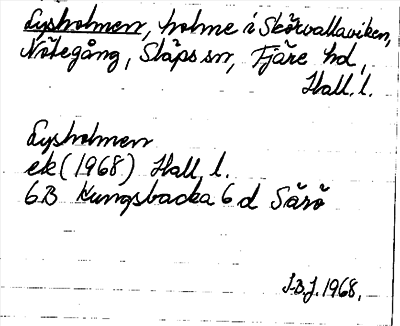 Lysholmen, holme i Skörvallaviken,
Nötegång, Släps sn, Fjäre hd,
Hall. l.
Lysholmen
ek (1968) Hall. l.
6B Kungsbacka 6 d Särö
J.B.J. 1968.